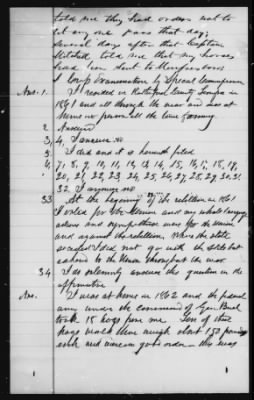 told me they had orders not to
let any one pass that day;
several days after that Captain
Mitchell told me that my horses
had been sent to Murfreesboro
I Corp Examination by Special Commissioner
Ans. 1. I resided in Rutherford County Tennessee in
1861 and all through the war and was at
home on personal all the time farming.
2 Answered
3, 4, I answer no
5 I did and it is herewith filed
6, 7, 8, 9, 10, 11, 12, 13, 14, 15, 16, 17, 18, 19,
20, 21, 22, 23, 24, 25, 26, 27, 28, 29, 30, 31,
32. I answer no
33 At the beginning of the rebellion in 1861
I voted for the Union and my whole
actions and sympathies were for the Union
and against the rebellion. When the state
seceded I did not go with the State but
adhered to the Union throughout the war
34 I do solemnly answer this question in the
affirmative
Ans. I was at home in 1862 and the federal
army under the command of Gen Buel
took 15 hogs from me. Ten of these
hogs would have weigh about 150 pounds
each and were in good order - this was